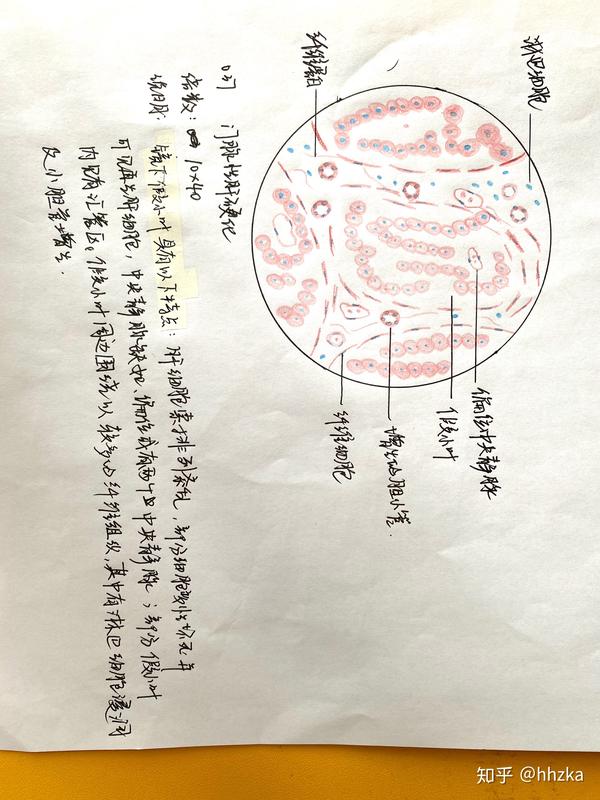 淋巴细胞
纤维蛋白
偏位中央静脉
假小叶
增生的胆小管.
纤维细胞
门脉性肝硬化
倍数: 10×40
镜下假小叶具有以下特点: 肝细胞索排列紊乱, 部分细胞变性坏死并
可见再生肝细胞, 中央静脉缺如、偏位或有两个以上中央静脉; 部分假小叶
内见有汇管区。假小叶周边围绕以较多的纤维组织, 其中有淋巴细胞浸润
及小胆管增生.
知乎 @hhzka